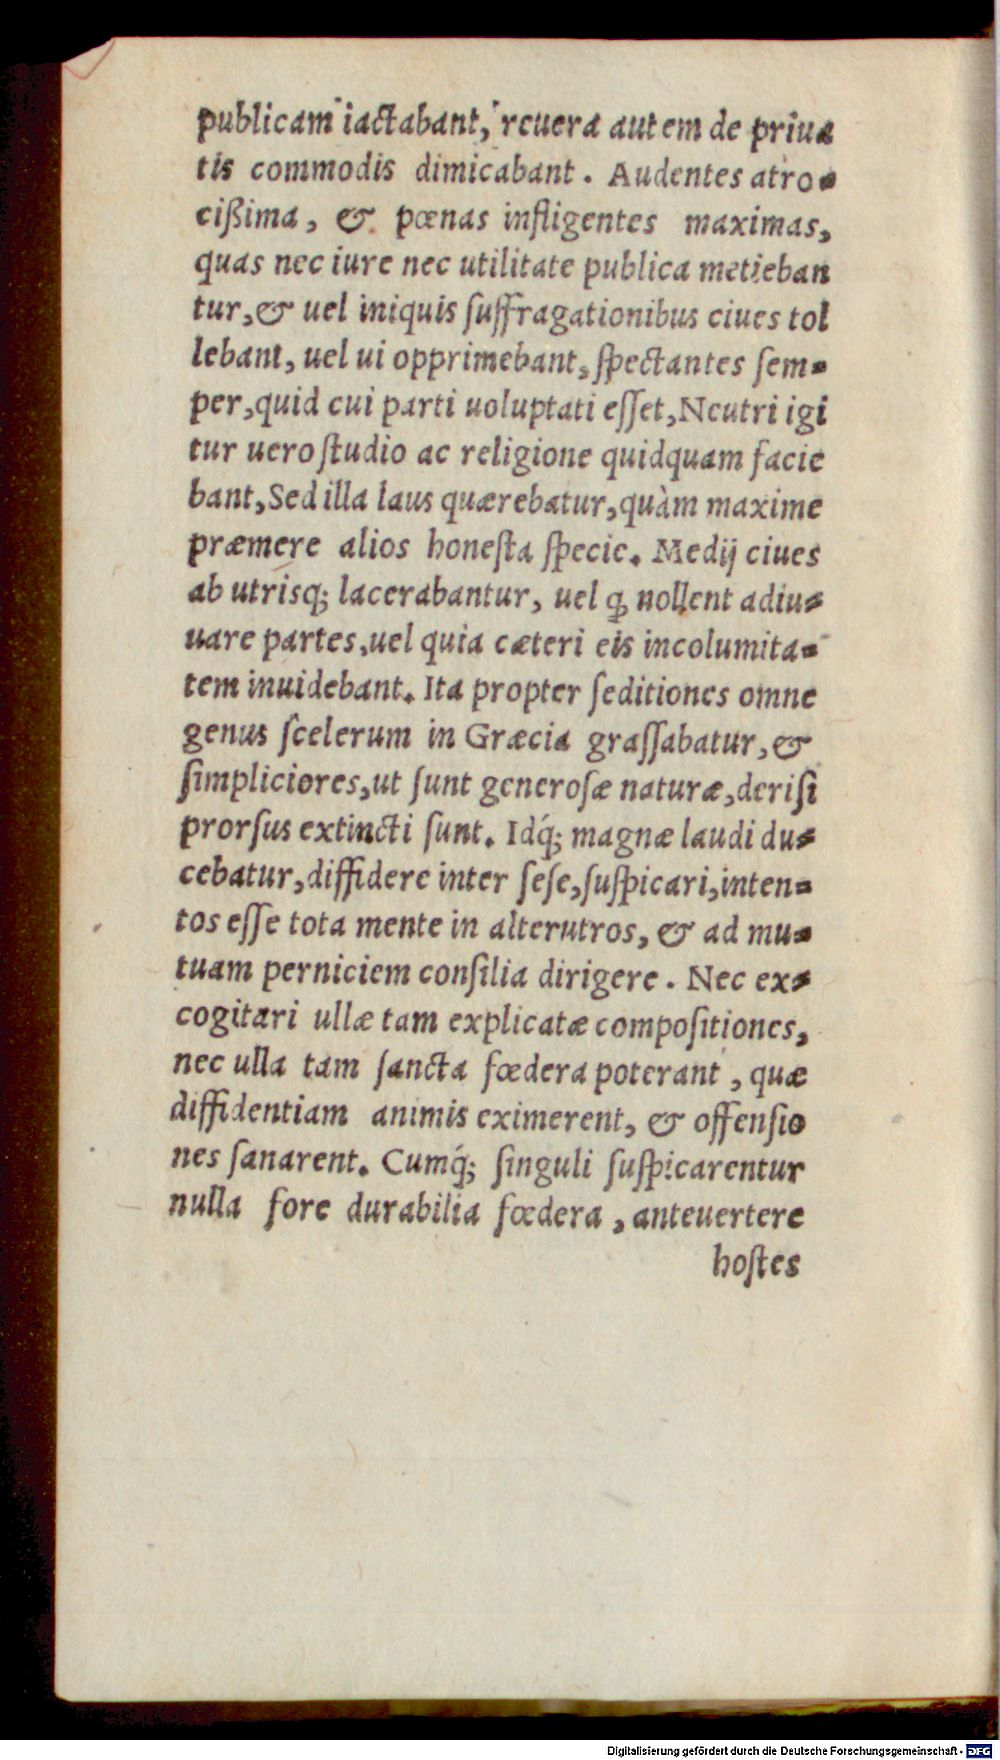 publicam iactabant, reuera autem de priua
tis commodis dimicabant. Audentes atro-
cißima, & pœnas infligentes maximas,
quas nec iure nec utilitate publica metieban
tur, & uel iniquis ſuffragationibus ciues tol
lebant, uel ui opprimebant, ſpectantes ſem-
per, quid cui parti uoluptati eſſet, Neutri igi
tur uero ſtudio ac religione quidquam facie
bant, Sed illa laus quærebatur, quàm maxime
præmere alios honeſta ſpecie. Medij ciues
ab utrisq; lacerabantur, uel ꝙ nollent adiu-
uare partes, uel quia cæteri eis incolumita-
tem inuidebant. Ita propter ſeditiones omne
genus ſcelerum in Græcia graſſabatur, &
ſimpliciores, ut ſunt generoſæ naturæ, deriſi
prorſus extincti ſunt. Idq́; magnæ laudi du-
cebatur, diffidere inter ſeſe, ſuſpicari, inten-
tos eſſe tota mente in alterutros, & ad mu-
tuam perniciem conſilia dirigere. Nec ex-
cogitari ullæ tam explicatæ compoſitiones,
nec ulla tam ſancta fœdera poterant, quæ
diffidentiam animis eximerent, & offenſio
nes ſanarent. Cumq́; ſinguli ſuſpicarentur
nulla fore durabilia fœdera, anteuertere
hoſtes
Digitalisierung gefördert durch die Deutsche Forschungsgemeinschaft - DFG